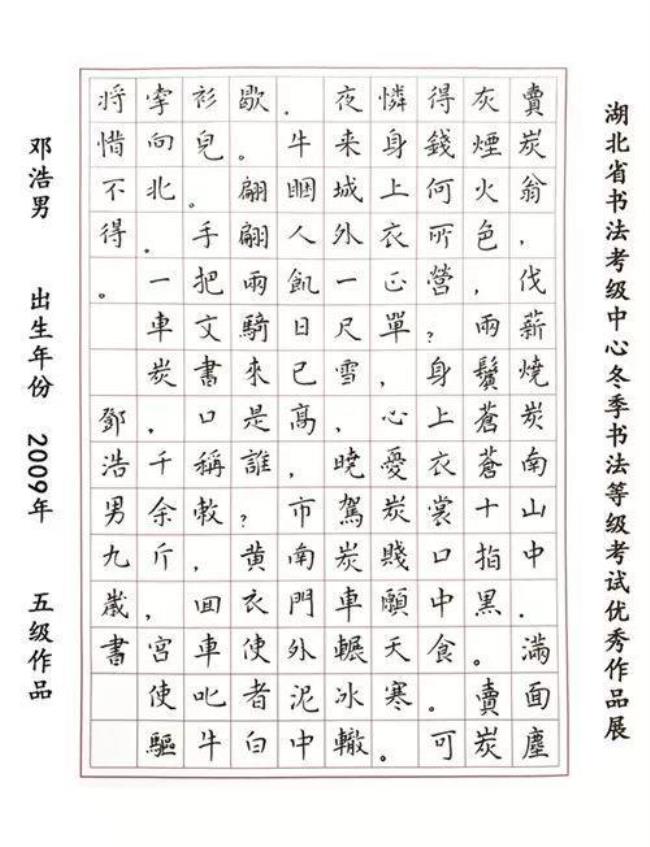 湖北省书法考级中心冬季书法等级考试优秀作品展
賣炭翁,伐薪燒炭南山中.滿面塵
灰煙火色,兩鬢蒼蒼十指黑。賣炭
得錢何所營?身上衣裳口中食。可
憐身上衣正單,心憂炭賤願天寒。
夜来城外一尺雪,曉駕炭車輾冰轍
.牛睏人飢日已高,市南門外泥中
歇。翩翩兩騎來是誰?黄衣使者白
衫兒。手把文書口稱敕,囬車叱牛
牽向北.一車炭,千余斤,宮使驅
將惜不得。 鄧浩男九歲書
邓浩男 出生年份 2009年 五级作品